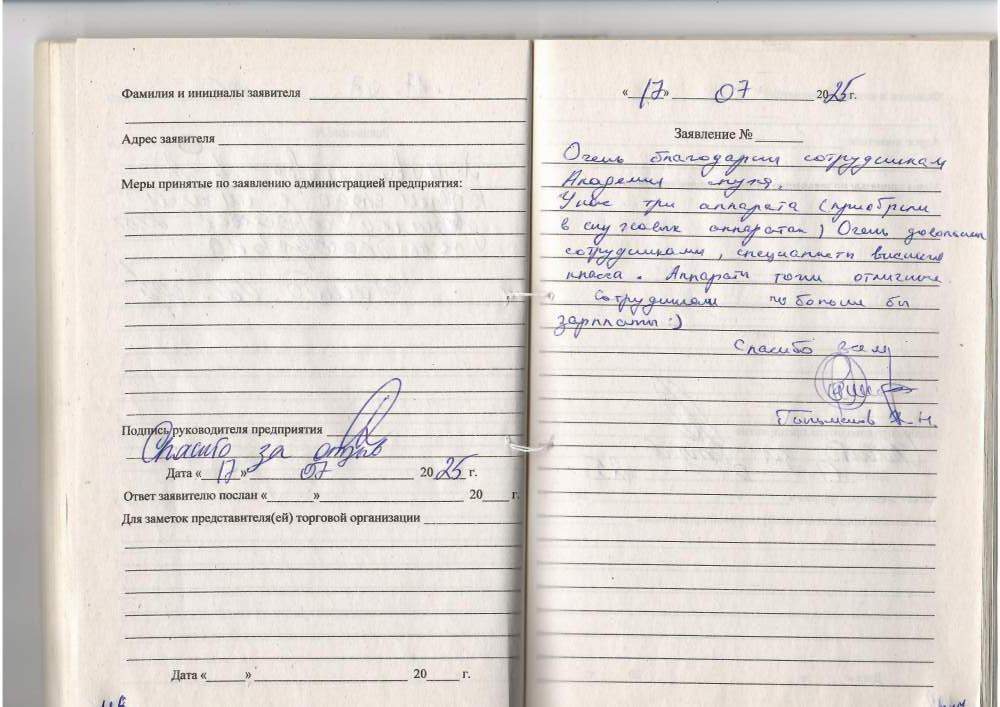 Фамилия и инициалы заявителя
Адрес заявителя
Меры принятые по заявлению администрацией предприятия:
Подпись руководителя предприятия
Спасибо за отзыв
Дата «17» 07 2025 г.
Ответ заявителю послан «» 20 г.
Для заметок представителя(ей) торговой организации
Дата «» 20 г.
«17» 07 2025 г.
Заявление №
Очень благодарны сотрудникам
Академии слуха.
Уже три аппарата (приобрели
в слуховых аппаратах) Очень довольны
сотрудниками, специалисты высшего
класса. Аппараты тоже отличные.
Сотрудникам побольше бы
зарплаты :)
Спасибо всем